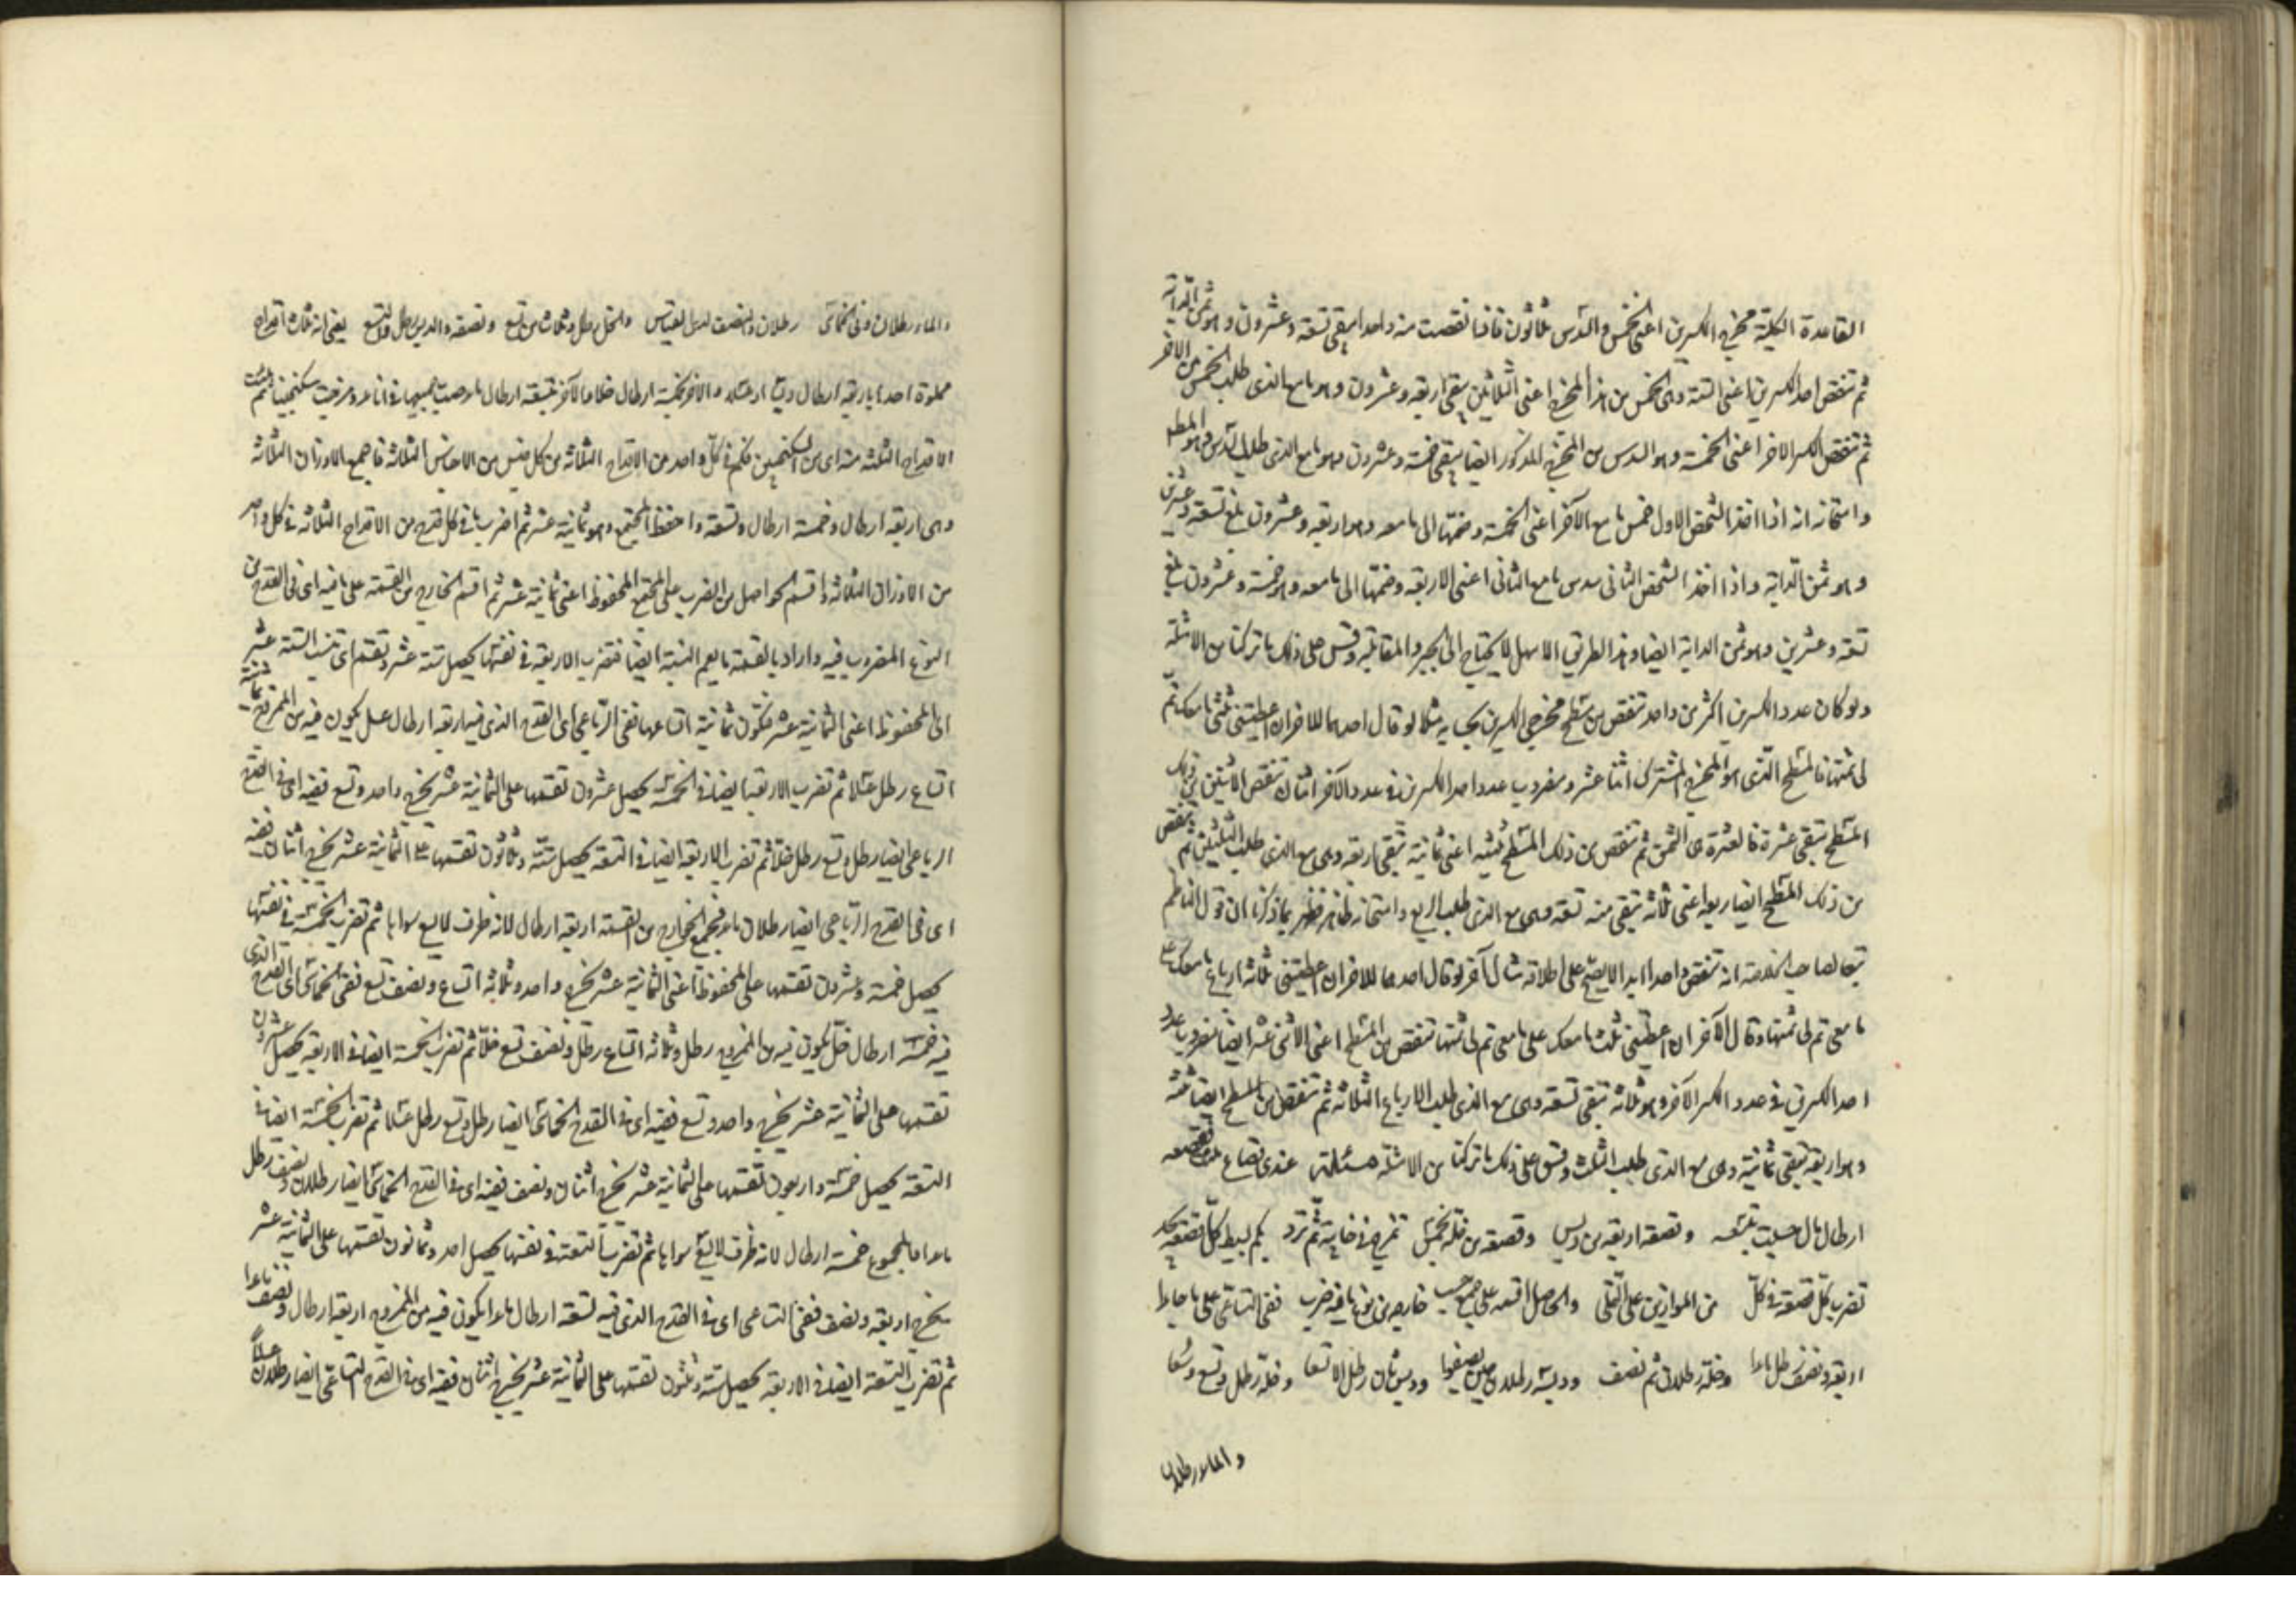 القاعدة الكلية مخرج الكسرين اعنى الخمس والسدس ثلاثون فاذا نقصت منه واحدا يبقى تسعة وعشرون وهو ثمن الدابة
ثم تنقص احد الكسرين اعنى الستة وهى الخمس من هذا المخرج اعنى الثلاثين يبقى اربعة وعشرون وهو ما مع الذى طلب الخمس من الاخر
ثم تنقص الكسر الاخر اعنى الخمسة وهو السدس من المخرج المذكور ايضا يبقى خمسة وعشرون وهو ما مع الذى طلب السدس وهو المطلوب
وامتحانه انه اذا اخذ الشخص الاول خمس ما مع الآخر اعنى الخمسة وضمها الى ما معه وهو اربعة وعشرون بلغ تسعة وعشرين
وهو ثمن الدابة واذا اخذ الشخص الثانى سدس ما مع الثانى اعنى الاربعة وضمها الى ما معه وهو خمسة وعشرون بلغ
تسعة وعشرين وهو ثمن الدابة ايضا وهذا الطريق الاسهل لا يحتاج الى الجبر والمقابلة وقس على ذلك ما تركنا من الامثلة
ولو كان عدد الكسرين اكثر من واحد تنقص من مسطح مخرجى الكسرين بحسابه مثلا لو قال احدهما للاخر ان اعطيتنى ثلثى ما معك تم
لى ثمنها فالمسطح الذى هو المخرج المشترك اثنا عشر ومضروب عدد احد الكسرين فى عدد الآخر اثنان تنقص الاثنين من ذلك
المسطح تبقى عشرة فالعشرة هى الثمن ثم تنقص من ذلك المسطح ثلثيه اعنى ثمانية تبقى اربعة وهى مع الذى طلب الثلثين ثم تنقص
من ذلك المسطح ايضا ربعه اعنى ثلاثة تبقى منه تسعة وهى مع الذى طلب الربع وامتحانه ظاهر فظهر بما ذكرنا ان قول الناظم
تبعا لصاحب الخلاصة انه تنقص واحدا ابدا لا يصح على اطلاقه مثال آخر لو قال احدهما للاخر ان اعطيتنى ثلاثة ارباع ما معك على
ما معى تم لى ثمنها وقال الآخر ان اعطيتنى ثلث ما معك على ما معى تم لى ثمنها تنقص من المسطح اعنى الاثنى عشر ايضا مضروب عدد
احد الكسرين فى عدد الكسر الآخر وهو ثلاثة تبقى تسعة وهى مع الذى طلب الارباع الثلاثة ثم تنقص من المسطح ايضا ثلثه
وهو اربعة تبقى ثمانية وهى مع الذى طلب الثلث وقس على ذلك ما تركنا من الامثلة مسئلة عندى قصاع
ارطال مال حسبت بتسعه وقصعة اربعة من دبس وقصعة من خلة بخمس تمزج فى خابية ثم ترد كم لبسيط كل قصعة يحد
تضرب كل قصعة فى كل من الموازين على التملى والحاصل اقسمه على جمع حسب خارجه من نوع ما فيه ضرب ففى التساعى على ما جاء ماء
اربعة ونصف رطل ماء وخله رطلان ثم نصف ودبسه رطلان ودبس ثان رطل الا تسعا وخله رطل وتسع وسعا
والماء رطلان
والماء رطلان وفى الخماسى رطلان والنصف لدى القياس والخل رطل وثلاث من تسع ونصفه والدبس رطل والتسع يعنى انه ثلاثة اقداح
مملوة احدها باربعة ارطال دبسا او عسلا والاخر بخمسة ارطال خلا والآخر بتسعة ارطال ماء وصبت جميعها فى اناء ومزجت سكنجبينا ثم ملئت
الاقداح الثلثة منه اى من السكنجبين فكم فى كل واحد من الاقداح الثلاثة من كل جنس من الاجناس الثلاثة فاجمع الاوزان الثلاثة
وهى اربعة ارطال وخمسة ارطال وتسعة واحفظ المجتمع وهو ثمانية عشر ثم اضرب ما فى كل قدح من الاقداح الثلاثة فى كل واحد
من الاوزان الثلاثة واقسم الحواصل من الضرب على المجتمع المحفوظ اعنى ثمانية عشر ثم اقسم الخارج من القسمة على ما فيه اى فى القدح من
النوع المضروب فيه واراد بالقسمة ما يعم النسبة ايضا فتضرب الاربعة فى نفسها يحصل ستة عشر وتقسم اى تنسب الستة عشر
الى المحفوظ اعنى الثمانية عشر فتكون ثمانية اتساعها ففى الرباعى اى القدح الذى فيه اربعة ارطال عسل يكون فيه من الممزوج ثمانية
اتساع رطل عسلا ثم تضرب الاربعة ايضا فى الخمسة يحصل عشرون تقسمها على الثمانية عشر يخرج واحد وتسع ففيه اى فى القدح
الرباعى ايضا رطل وتسع رطل خلا ثم تضرب الاربعة ايضا فى التسعة يحصل ستة وثلاثون تقسمها على الثمانية عشر يخرج اثنان ففيه
اى فى القدح الرباعى ايضا رطلان ماء فجميع الخارج من القسمة اربعة ارطال لانه ظرف لا يسع سواها ثم تضرب الخمسة فى نفسها
يحصل خمسة وعشرون تقسمها على المحفوظ اعنى الثمانية عشر يخرج واحد وثلاثة اتساع ونصف تسع ففى الخماسى اى القدح الذى
فيه خمسة ارطال خل يكون فيه من الممزوج رطل وثلاثة اتساع رطل ونصف تسع خلا ثم تضرب الخمسة ايضا فى الاربعة يحصل عشرون
تقسمها على الثمانية عشر يخرج واحد وتسع ففيه اى فى القدح الخماسى ايضا رطل وتسع رطل عسلا ثم تضرب الخمسة ايضا فى
التسعة يحصل خمسة واربعون تقسمها على الثمانية عشر يخرج اثنان ونصف ففيه اى فى القدح الخماسى ايضا رطلان ونصف رطل
ماءا فالمجموع خمسة ارطال لانه ظرف لا يسع سواها ثم تضرب التسعة فى نفسها يحصل احد وثمانون تقسمها على الثمانية عشر
يخرج اربعة ونصف ففى التساعى اى فى القدح الذى فيه تسعة ارطال ماءا يكون فيه من الممزوج اربعة ارطال ونصف ماءا
ثم تضرب التسعة ايضا فى الاربعة يحصل ستة وثلثون تقسمها على الثمانية عشر يخرج اثنان ففيه اى فى القدح التساعى ايضا رطلان عسلا